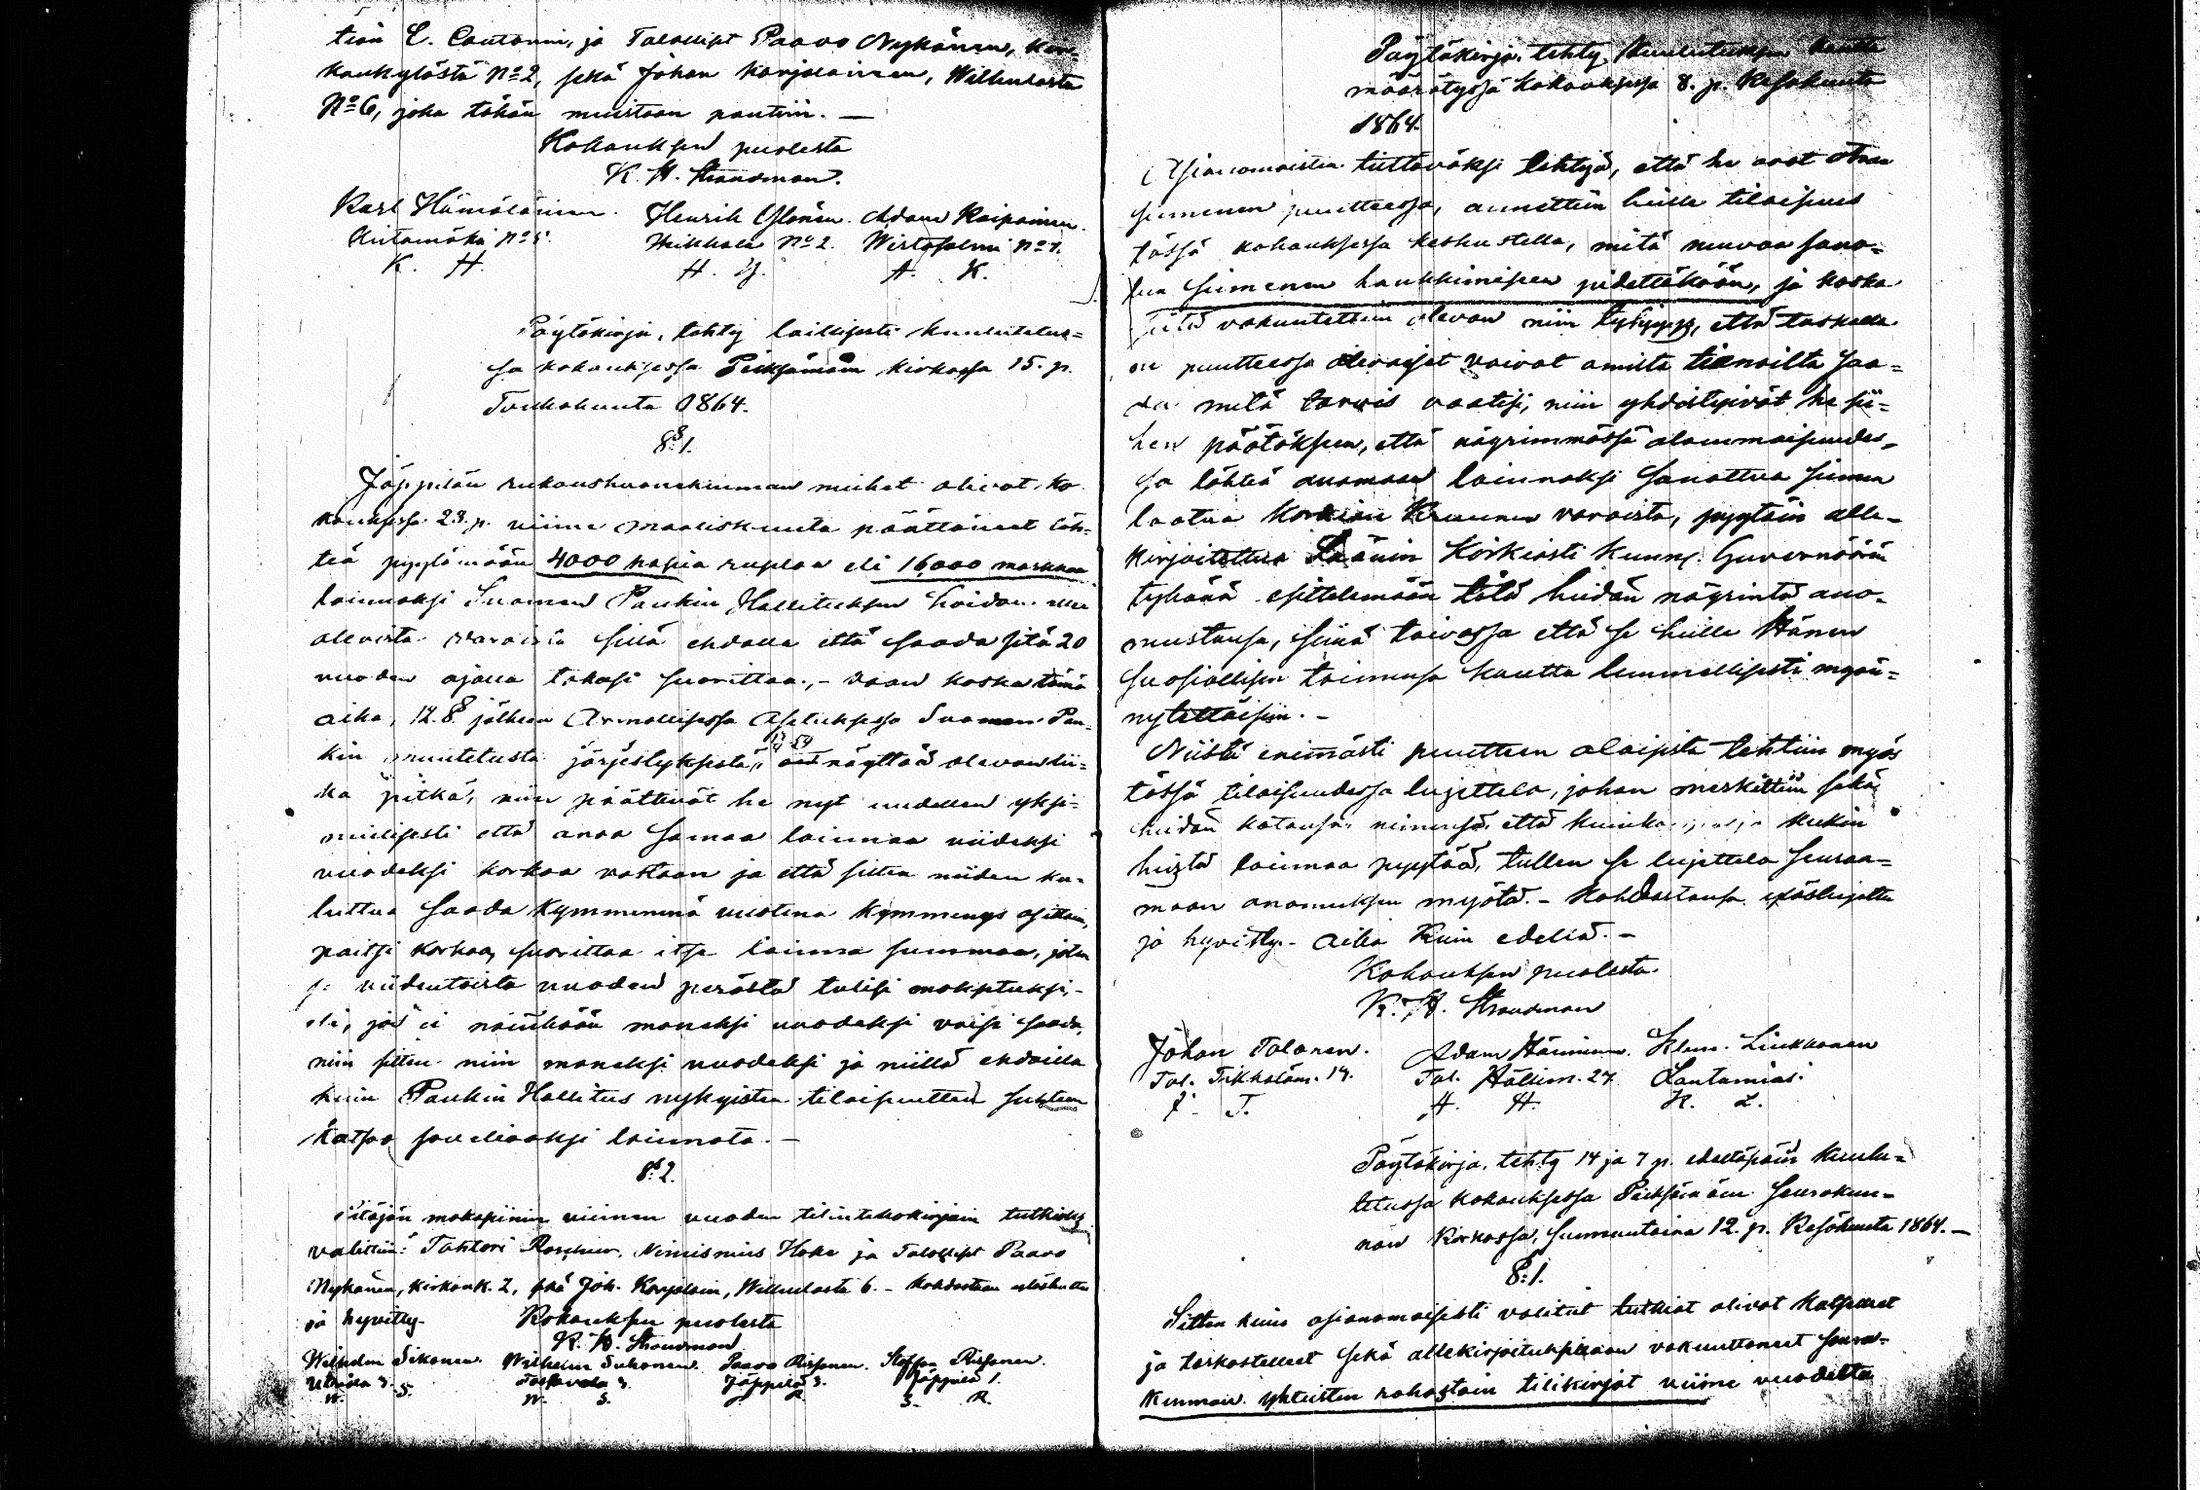 tion C. Cantonin, ja Talollist Paavo Nykänen, Kir-
konkylästä No 2, sekä Johan Karjalainen, Wilhulasta
No 6, joka tähän muistoon pantiin. —
Kokouksen puolesta
K. H. Strandman.
Karl Hämäläinen. Henrik Ylönen. Adam Kaipainen.
Hiitomäki No 5. Heikkala No 2. Wirtasalmi No 7.
K. H. H. Y. A. K.
Pöytäkirja, tehty laillisesti kuulutetus-
sa kokouksessa Pieksämäen kirkossa 15. p.
Toukokuuta 1864.
§ 1.
Jäppilän rukoushuonekunnan miehet olivat ko-
kouksessa 28. p. viime maaliskuuta päättäneet läh-
teä pyytämään 4000 hopia ruplaa eli 16,000 markkaa
lainaksi Suomen Pankin Hallituksen hoidon alla
olevista varoista sillä ehdolla että saada sitä 20
vuoden ajalla takasi suorittaa, - vaan koska tämä
aika, 12. § jälkeen Armollisessa Asetuksessa Suomen Pan-
kin muutetusta järjestyksestä, näyttää olevan lii-
ka pitkä, niin päättivät he nyt uudellen yksi-
mielisesti että anoa samaa lainaa viideksi
vuodeksi korkoa vastaan ja että sitten niiden ku-
luttua saada kymmenenä vuotena kymmenys osittain,
paitsi korkoa, suorittaa itse laina summaa, joten
se viidentoista vuoden perästä tulisi maksetuksi, -
eli, jos ei näinkään moneksi vuodeksi voisi saada,
niin sitten niin moneksi vuodeksi ja niillä ehdoilla
kuin Pankin Hallitus nykyisten tilaisuutten suhteen
katsoo soveliaaksi lainata. —
§ 2.
Pitäjän makasiinin viimen vuoden tilintekokirjain tutkioiksi
valittiin: Tohtori Roschier, Nimismies Hoke ja Talollist Paavo
Nykänen, kirkonk. 2, sekä Joh. Karjalain, Wilhulasta 6. - Kohdastaan ylösluettu
ja hyvitty - Kokouksen puolesta
K. H. Strandman
Wilhelm Sikanen. Wilhelm Suhonen. Paavo Rissonen. Stoffan Rissonen.
3. 3. Jäppilä 3. Jäppilä 1.
W. S. W. S. P. R. S. R.
Pöytäkirja, tehty kuulutuksen kautta
määrätyssä kokouksessa 8. p. Kesäkuuta
1864.
Asianomaisten tiettäväksi tehtyä, että he ovat ohran
siemenen puutteessa, annettiin heille tilaisuus
tässä kokouksessa keskustella, mitä neuvoa sano-
tun siemenen hankkimiseen pidettäköön, ja koska
siitä vakuutettiin olevan niin tyhjyys, että taskulla
on puutteessa olevaiset voivat omilta tienoilta saa-
da mitä tarvis vaatisi, niin yhdistyivät he sii-
hen päätöksen, että nöyrimmässä alammaisuudes-
sa lähteä anomaan lainaksi sanottua siemen
laatua Korkian Kruunun varoista, pyytäin alle-
kirjoitettua Läänin Korkiasti Kunn. Guvernöörin
tykönä esittelemään tätä heidän nöyrintä ano-
mustansa, siinä toivossa että se heille Hänen
suosiollisen toimensa kautta lemmellisesti myön-
nytettäisiin. -
Niistä enimästi puutteen alaisista tehtiin myös
tässä tilaisuudessa lujettelo, johan merkittiin sekä
heidän kotonsa, nimensä, että kuinka paljo kukin
heistä lainaa pyytää, tullen se lujettelo seuraa-
maan anomuksen myötä. - Kohdastansa ylösluettu
ja hyvitty. - Aika kuin edellä. -
Kokouksen puolesta.
K. H. Strandman
Johan Tolonen. Adam Hänninen. Klem. Liukkonen
Tal. Tikkalam. 14. Tal. Hällim. 27. Lautamies.
J. T. A. H. K. L.
Pöytäkirja, tehty 14 ja 7 p. edeltäpäin kuulu-
tetussa kokouksessa Pieksämäen seurakun-
nan Kirkossa, sunnuntaina 12. p. Kesäkuuta 1864. —
§ 1.
Sitten kuin asianomaisesti valitut tutkiat olivat katselleet
ja tarkastelleet sekä allekirjoituksillaan vakuuttaneet seura-
kunnan yhteisten rahastoin tilikirjat viime vuodelta